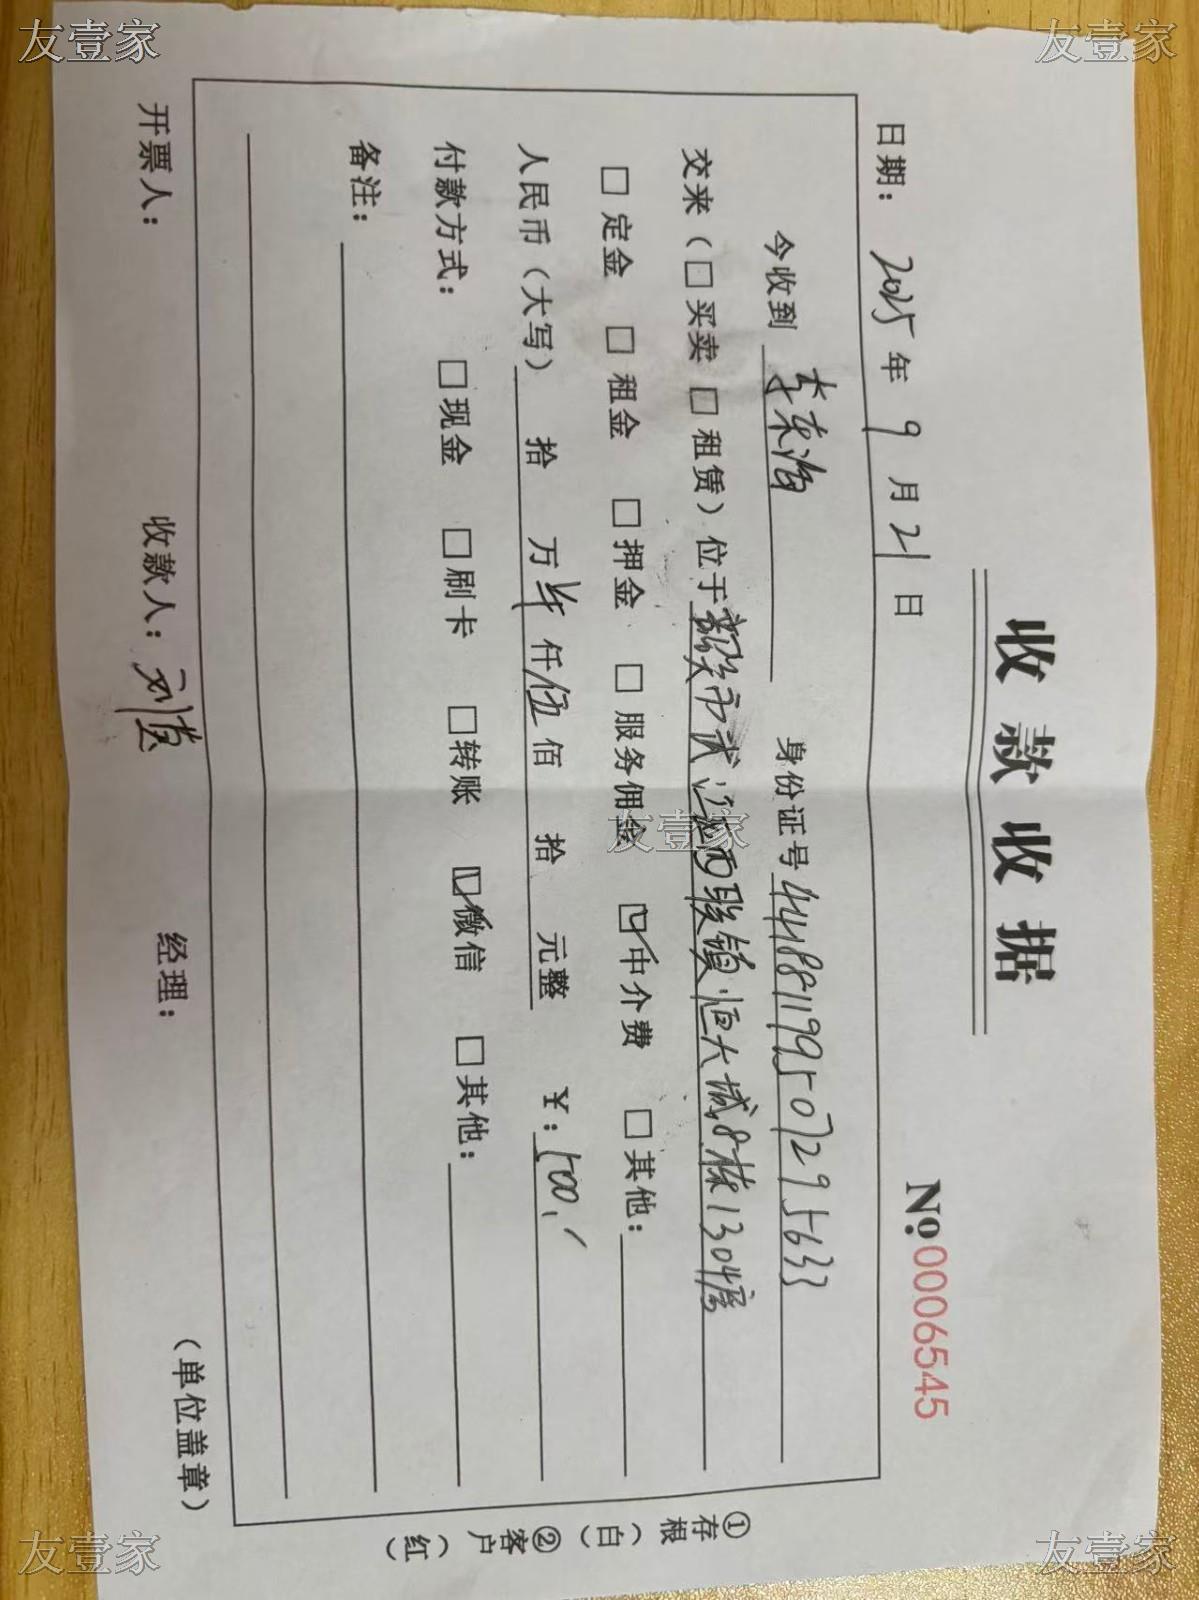 友壹家
友壹家
收款收据
No.0006545
日期：2025年9月21日
今收到 李东海 身份证号 441881199507295633
交来（□买卖 □租赁）位于 韶关市武江区西联镇恒大城8栋1304房
□定金 □租金 □押金 □服务佣金 ☑中介费 □其他：
人民币（大写） 拾 万 仟伍佰 拾 元整 ¥：500.
付款方式：□现金 □刷卡 □转账 ☑微信 □其他：
备注：
开票人： 收款人：刘 经理： （单位盖章）
①存根（白）②客户（红）
友壹家
友壹家
友壹家